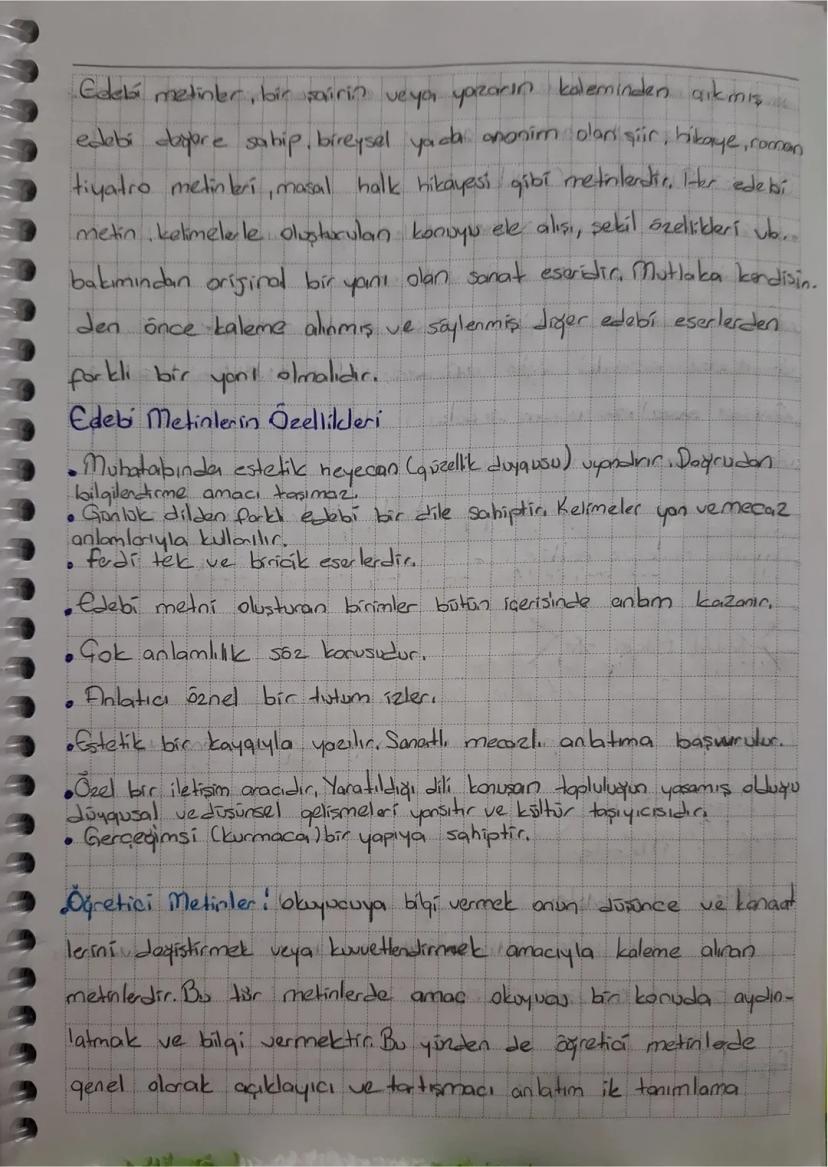 Edebi metinler, bir şairin veya yazarın kaleminden çıkmış
edebi değere sahip, bireysel yada anonim olan şiir, hikaye, roman
tiyatro metinleri, masal halk hikayesi gibi metinlerdir. Her edebi
metin, kelimelerle oluşturulan konuyu ele alışı, şekil özellikleri vb.
bakımından orijinal bir yanı olan sanat eseridir. Mutlaka kendisin-
den önce kaleme alınmış ve söylenmiş diğer edebi eserlerden
farklı bir yanı olmalıdır.
Edebi Metinlerin Özellikleri
• Muhatabında estetik heyecan (güzellik duygusu) uyandırır. Doğrudan
bilgilendirme amacı taşımaz.
• Günlük dilden farklı edebi bir dile sahiptir. Kelimeler yan ve mecaz
anlamlarıyla kullanılır.
• ferdi tek ve biricik eserlerdir.
• Edebi metni oluşturan birimler bütün içerisinde anlam kazanır.
• Çok anlamlılık söz konusudur.
• Anlatıcı öznel bir tutum izler.
• Estetik bir kaygıyla yazılır. Sanatlı mecazlı anlatıma başvurulur.
• Özel bir iletişim aracıdır. Yaratıldığı dili konuşan topluluğun yaşamış olduğu
duygusal ve düşünsel gelişmeleri yansıtır ve kültür taşıyıcısıdır.
• Gerçeğimsi (kurmaca) bir yapıya sahiptir.
Öğretici Metinler: Okuyucuya bilgi vermek onun düşünce ve kanaat
lerini değiştirmek veya kuvvetlendirmek amacıyla kaleme alınan
metinlerdir. Bu tür metinlerde amaç okuyucuyu bir konuda aydın-
latmak ve bilgi vermektir. Bu yüzden de öğretici metinlerde
genel olarak açıklayıcı ve tartışmacı anlatım ile tanımlama